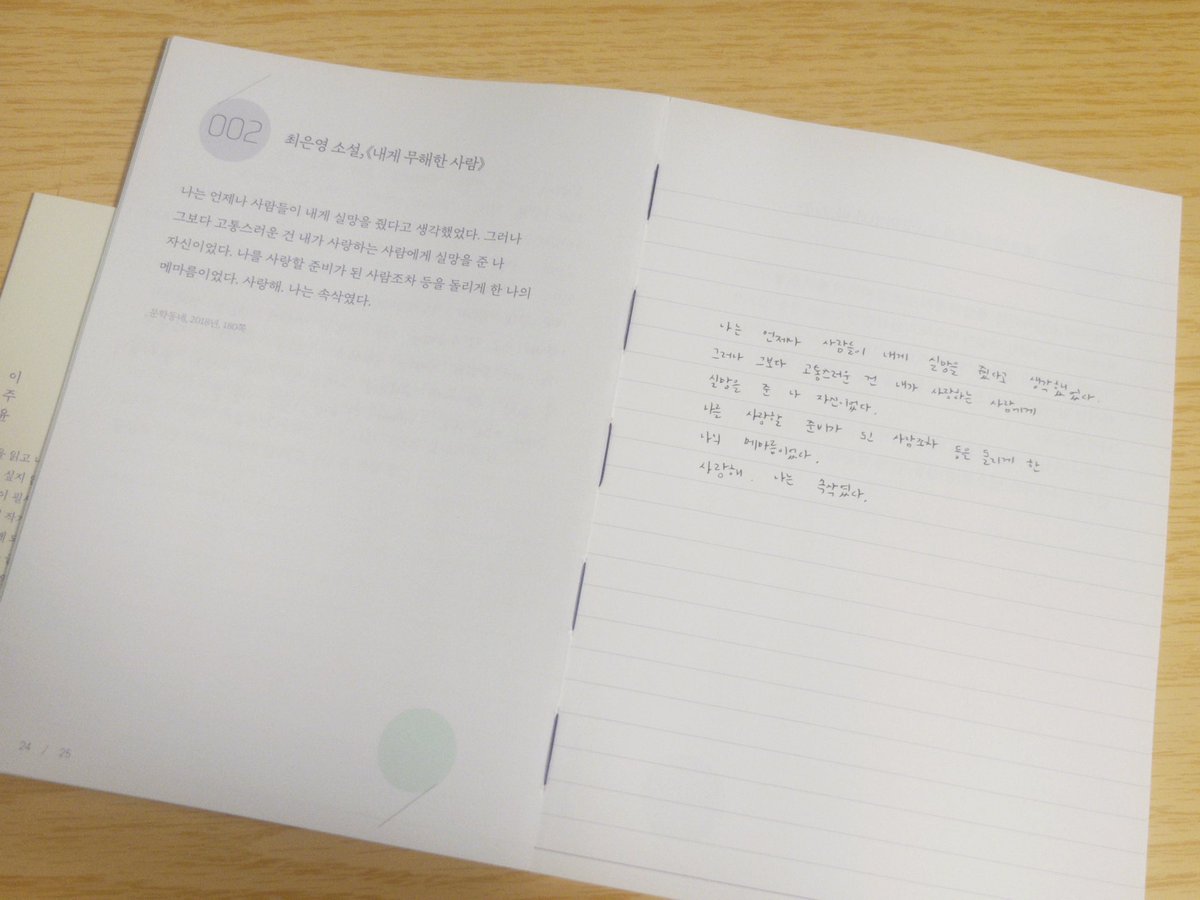 002
최은영 소설,《내게 무해한 사람》
나는 언제나 사람들이 내게 실망을 줬다고 생각했었다. 그러나
그보다 고통스러운 건 내가 사랑하는 사람에게 실망을 준 나
자신이었다. 나를 사랑할 준비가 된 사람조차 등을 돌리게 한 나의
메마름이었다. 사랑해. 나는 속삭였다.
문학동네, 2018년, 180쪽
24 / 25
나는 언제나 사람들이 내게 실망을 줬다고 생각했었다.
그러나 그보다 고통스러운 건 내가 사랑하는 사람에게
실망을 준 나 자신이었다.
나를 사랑할 준비가 된 사람조차 등을 돌리게 한
나의 메마름이었다.
사랑해. 나는 속삭였다.
이
주
윤
읽고
싣지